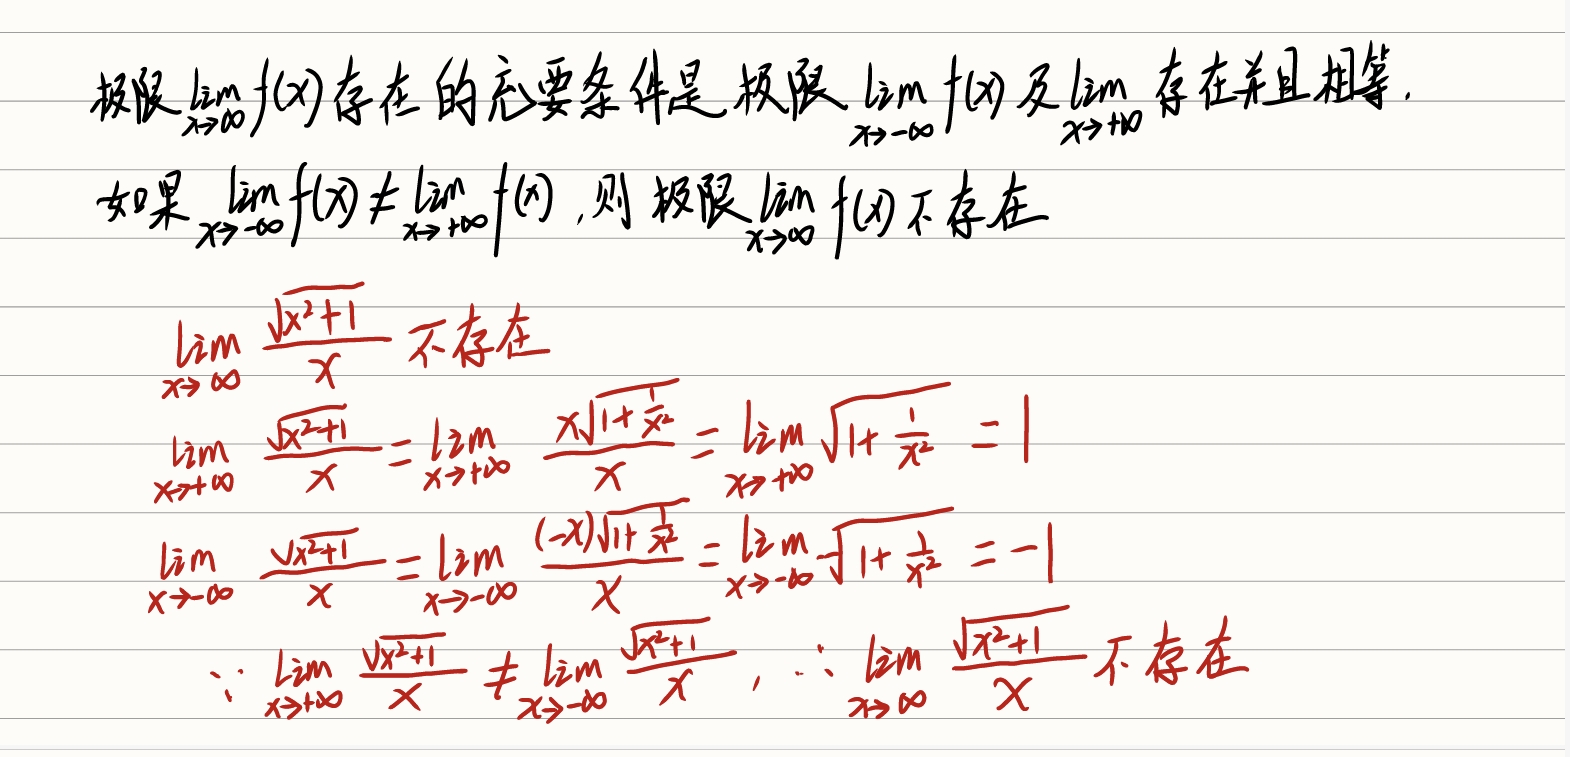 极限 lim_{x→∞} f(x) 存在的充要条件是 极限 lim_{x→-∞} f(x) 及 lim_{x→+∞} 存在并且相等.
如果 lim_{x→-∞} f(x) ≠ lim_{x→+∞} f(x) ,则 极限 lim_{x→∞} f(x) 不存在
lim_{x→∞} √(x²+1)/x 不存在
lim_{x→+∞} √(x²+1)/x = lim_{x→+∞} x√(1+1/x²)/x = lim_{x→+∞} √(1+1/x²) = 1
lim_{x→-∞} √(x²+1)/x = lim_{x→-∞} (-x)√(1+1/x²)/x = lim_{x→-∞} -√(1+1/x²) = -1
∵ lim_{x→+∞} √(x²+1)/x ≠ lim_{x→-∞} √(x²+1)/x , ∴ lim_{x→∞} √(x²+1)/x 不存在